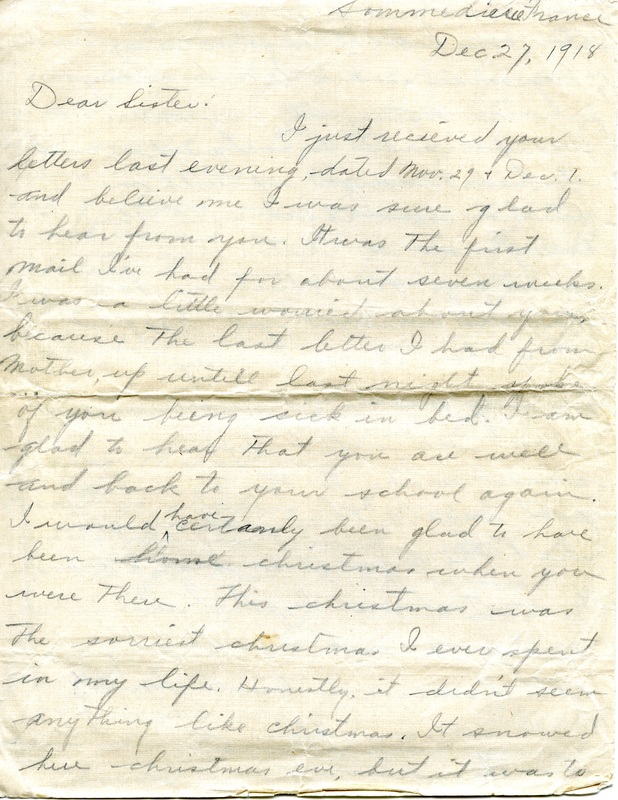 Sommedieue France
Dec. 27, 1918
Dear Sister:
I just recieved your
letters last evening, dated Nov. 29 + Dec. 1.
and believe me I was sure glad
to hear from you. It was the first
mail I've had for about seven weeks.
I was a little worried about you,
because the last letter I had from
Mother, up untill last night spoke
of you being sick in bed. I am
glad to hear that you are well
and back to your school again.
I would have certanly been glad to have
been home christmas when you
were there. This christmas was
the sorriest christmas I ever spent
in my life. Honestly, it didn't seem
anything like christmas. It snowed
here christmas eve, but it was to